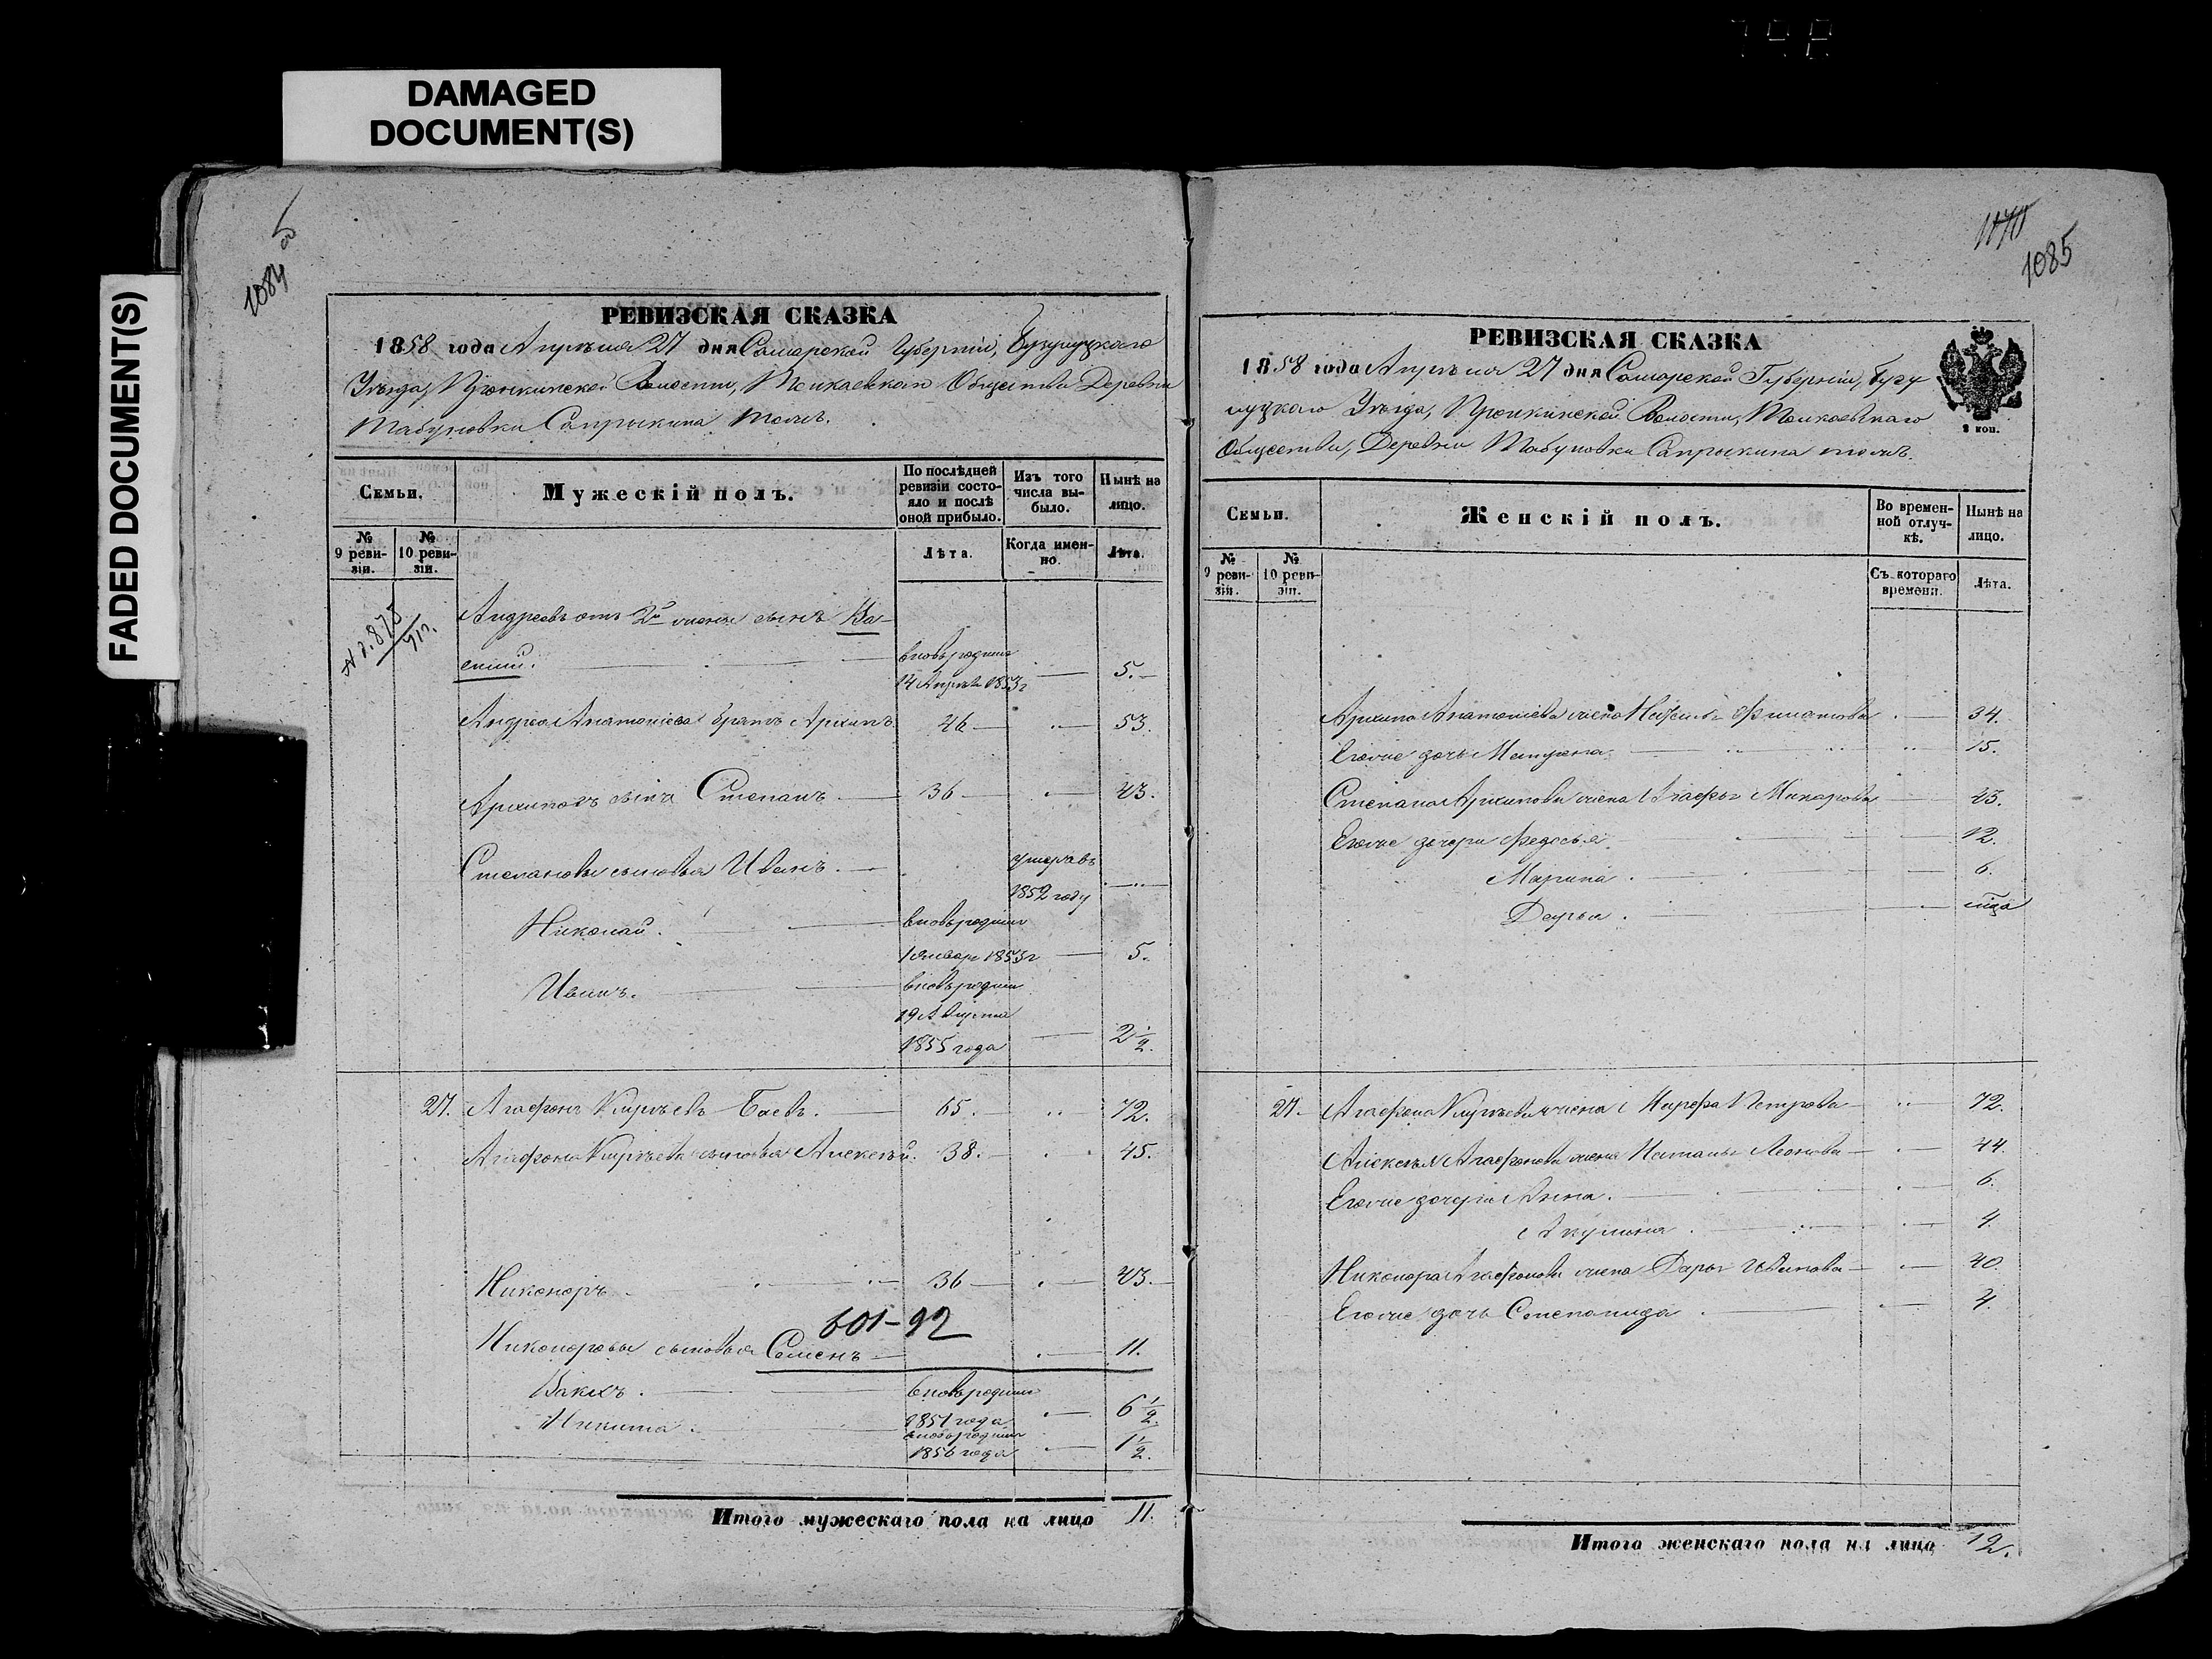 DAMAGED
DOCUMENT(S)
FADED DOCUMENT(S)
1084
РЕВИЗСКАЯ СКАЗКА
1858 года Апрѣля 27 дня Самарской Губерніи, Бузулуцкаго
Уѣзда, Пронкинской Волости, Обществa Деревни
Табуновки Сапрыкина тожъ.
Семьи.
Мужескій полъ.
По послѣдней ревизіи состояло и послѣ оной прибыло.
Изъ того числа выбыло.
Нынѣ на лицо.
№ 9 ревизіи.
№ 10 ревизіи.
Лѣта.
Когда именно.
Лѣта.
№ 875
Андреевъ отъ 2й жены сынъ Ва-
силій. вновьрожден 14 Апрѣля 1853г 5.
Андрея братъ Архипъ 46 53.
Архиповъ сынъ Степанъ 36 43.
Степановы сыновья Иванъ. умеръ въ 1852 году
Николай. вновьрожден 1 Январ 1853г 5.
Иванъ. вновьрожден 19 Августа 1855 года 2 1/2.
27. Агафонъ Баевъ. 65. 72.
Агафона сыновья Алексѣй. 38. 45.
Никоноръ. 36 43.
601-92
Никоноровы сыновья Семенъ 11.
Вакхъ. вновьрожден 1851 года 6 1/2.
Никита. вновьрожден 1856 года 1 1/2.
Итого мужескаго пола на лицо 11.
1070
1085
РЕВИЗСКАЯ СКАЗКА
2 коп.
1858 года Апрѣля 27 дня Самарской Губерніи, Бузу
луцкаго Уѣзда, Пронкинской Волости,
Общества, Деревни Табуновки Сапрыкина тожъ.
Семьи.
Женскій полъ.
Во временной отлучкѣ.
Нынѣ на лицо.
№ 9 ревизіи.
№ 10 ревизіи.
Съ котораго времени.
Лѣта.
Архипа жена Филатова 34.
Егоже дочь Матрена 15.
Степана Архипова жена Агафья Макарова 43.
Егоже дочери Федосья 12.
Марина. 6.
Дарья.
27. Агафона жена Марфа Петрова 72.
Алексѣя Агафонова жена Наталья Леонова 44.
Егоже дочери Анна. 6.
Акулина 4.
Никонора Агафонова жена Дарья Иванова 40.
Егоже дочь Степанида. 4.
Итого женскаго пола на лицо 12.